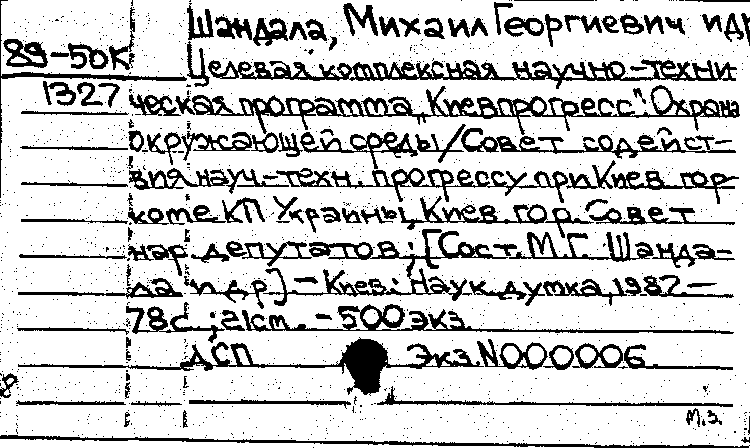 Шандала, Михаил Георгиевич и др
89-50К
Целевая комплексная научно-техни
1327
ческая программа „Киевпрогресс": Охрана
окружающей среды/Совет содейст-
вия науч.-техн. прогрессу при Киев. гор
коме КП Украины, Киев. гор. Совет
нар. депутатов; [Сост. М.Г. Шанда-
ла и др]. - Киев: Наук. думка, 1987. -
78с.; 21см. - 500 экз.
ДСП Экз. N000006
М.З.